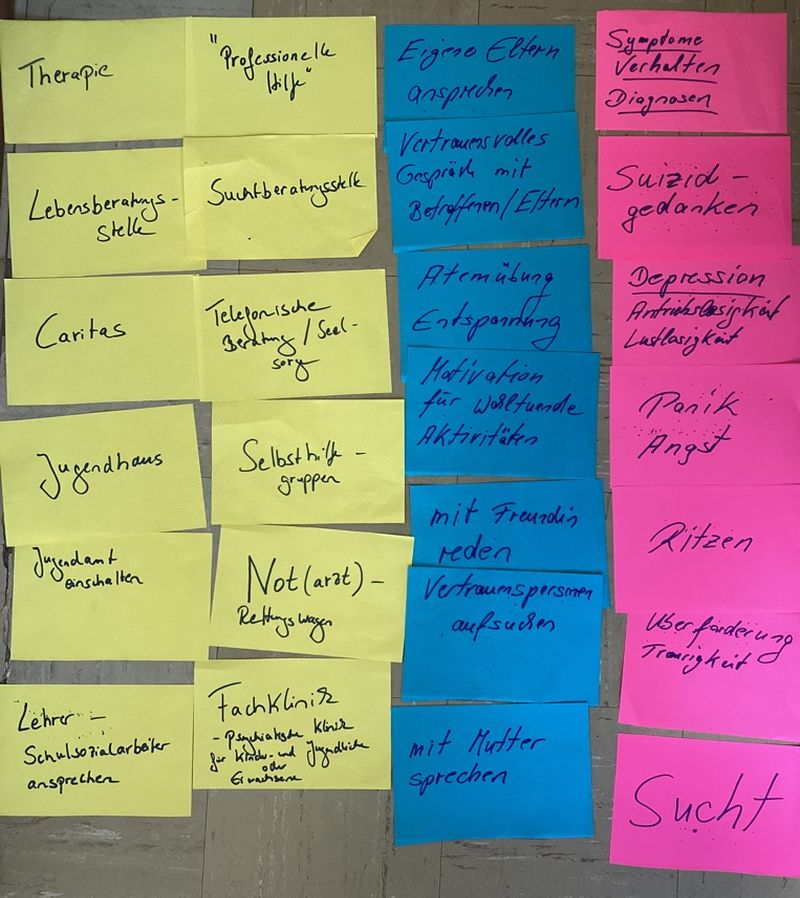 Therapie
"Professionelle
Hilfe"
Lebensberatungs-
stelle
Suchtberatungsstelle
Caritas
Telefonische
Beratung / Seel-
sorge
Jugendhaus
Selbsthilfe-
gruppen
Jugendamt
einschalten
Not(arzt)-
Rettungswagen
Lehrer -
Schulsozialarbeiter
ansprechen
Fachklinik
- Psychiatrische Klinik
für Kinder- und Jugendliche
oder
Erwachsene
Eigene Eltern
ansprechen
Vertrauensvolles
Gespräch mit
Betroffenen/Eltern
Atemübung
Entspannung
Motivation
für Wohltuende
Aktivitäten
mit Freundin
reden
Vertrauenspersonen
aufsuchen
mit Mutter
sprechen
Symptome
Verhalten
Diagnosen
Suizid-
gedanken
Depression
Antriebslosigkeit
Lustlosigkeit
Panik
Angst
Ritzen
Überforderung
Traurigkeit
Sucht